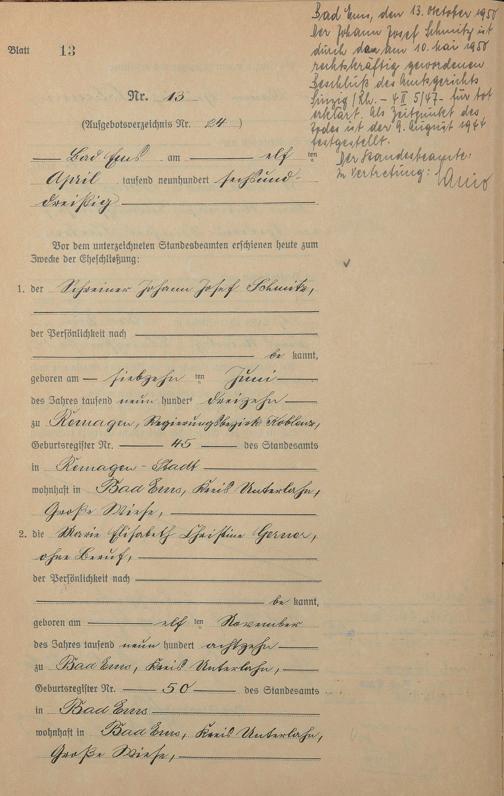 Blatt 13
Bad Ems, den 13. Oktober 1950
Der Johann Josef Schmitz ist
durch den am 10. Mai 1950
rechtskräftig gewordenen
Beschluß des Amtsgerichts
Sinzig /Rh. - 4 II 5/47 - für tot
erklärt. Als Zeitpunkt des
Todes ist der 9. August 1944
festgestellt.
Der Standesbeamte.
In Vertretung:
Nr. 13
(Aufgebotsverzeichnis Nr. 24)
Bad Ems am elf ten
April tausend neunhundert sechsund-
dreißig
Vor dem unterzeichneten Standesbeamten erschienen heute zum
Zwecke der Eheschließung:
1. der Schreiner Johann Josef Schmitz,
der Persönlichkeit nach
be kannt,
geboren am siebzehn ten Juni
des Jahres tausend neun hundert dreizehn
zu Remagen, Regierungsbezirk Koblenz,
Geburtsregister Nr. 45 des Standesamts
in Remagen-Stadt
wohnhaft in Bad Ems, Kreis Unterlahn,
Große Wiese,
2. die Marie Elisabeth Christine
ohne Beruf,
der Persönlichkeit nach
be kannt,
geboren am elf ten November
des Jahres tausend neun hundert achtzehn
zu Bad Ems, Kreis Unterlahn,
Geburtsregister Nr. 50 des Standesamts
in Bad Ems
wohnhaft in Bad Ems, Kreis Unterlahn,
Große Wiese,